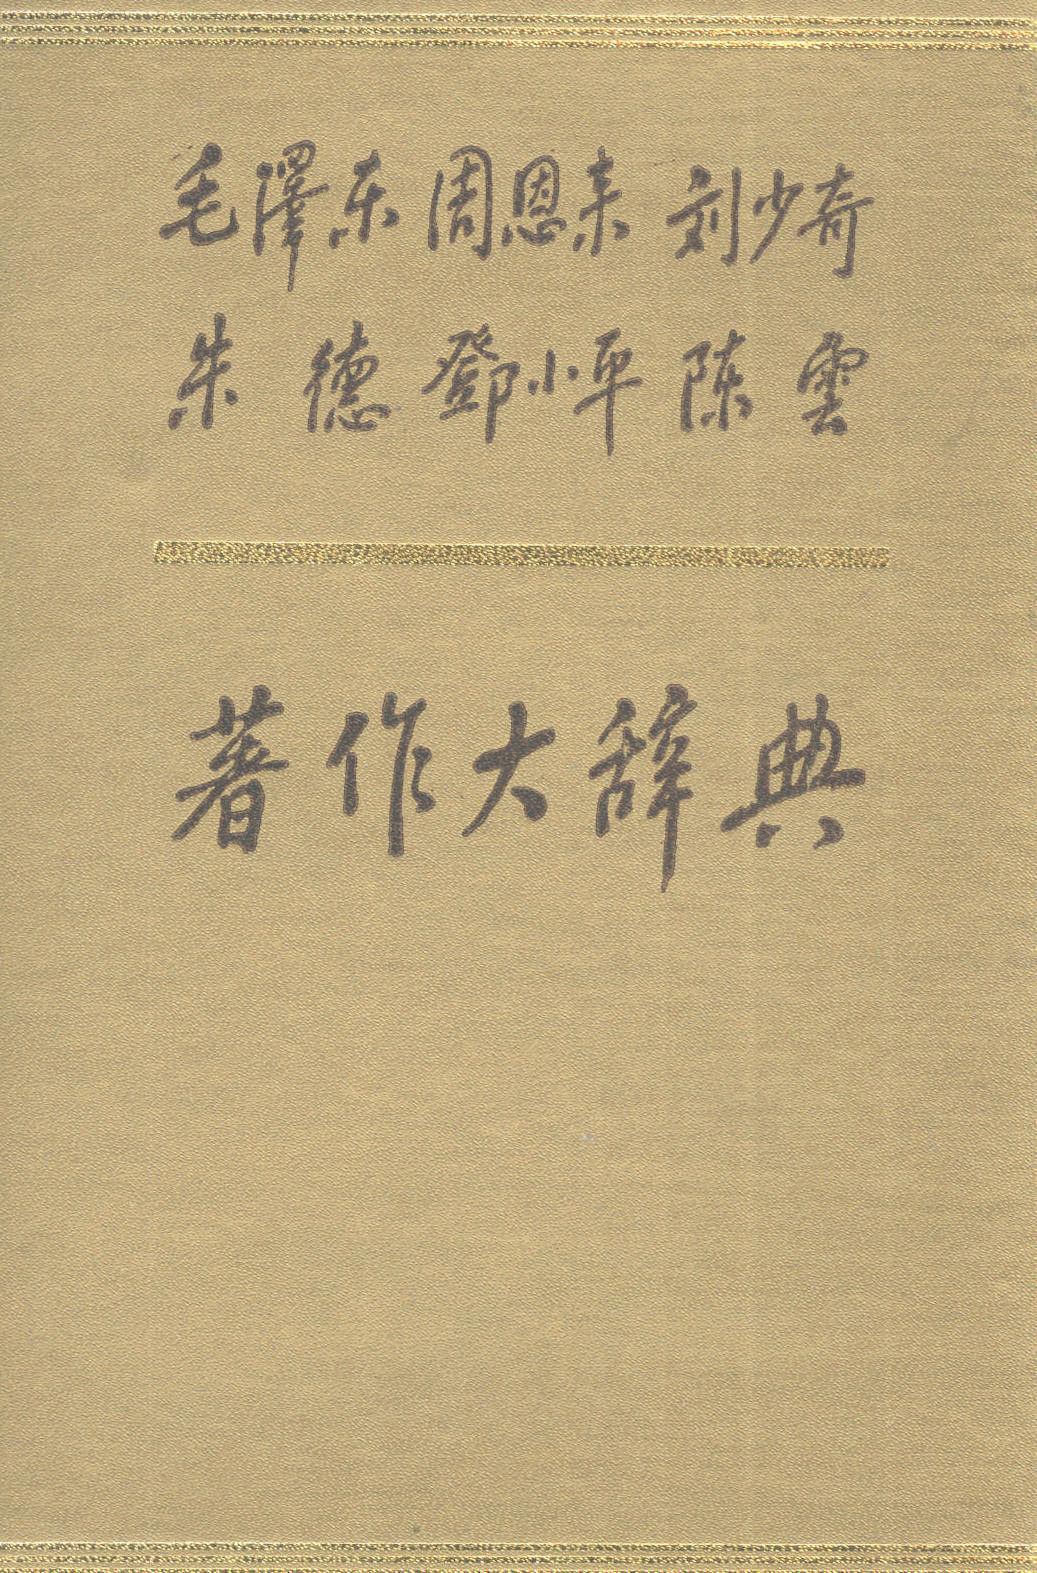 毛澤东 周恩来 刘少奇
朱 德 鄧小平 陈 雲
著作大辞典